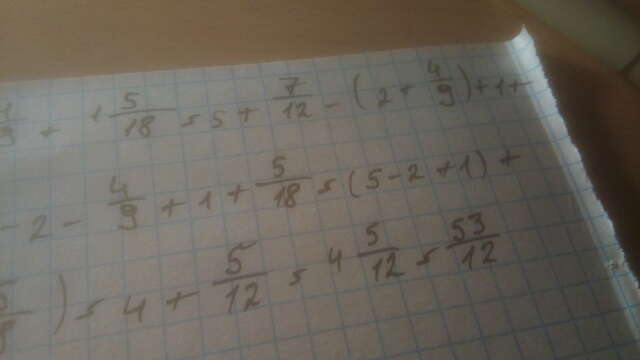 4/9 + 1 5/18 = 5 + 7/12 - (2 + 4/9) + 1 +
- 2 - 4/9 + 1 + 5/18 = (5 - 2 + 1) +
) = 4 + 5/12 = 4 5/12 = 53/12